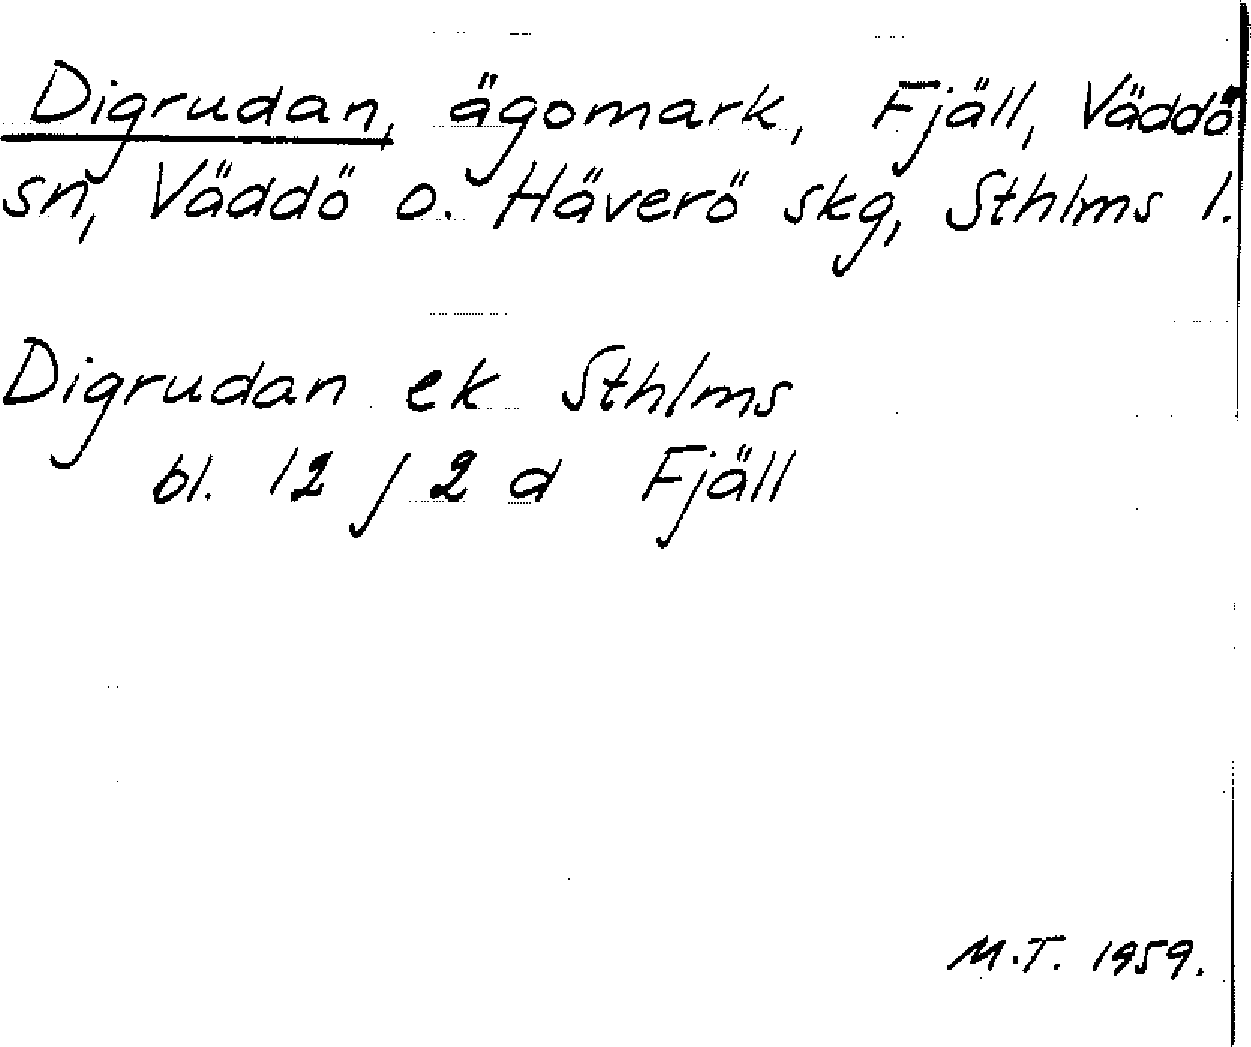 Digrudan, ägomark, Fjäll, Väddö
sn, Väddö o. Häverö skg, Sthlms l.
Digrudan ek Sthlms
bl. 12 j 2 d Fjäll
M.T. 1959.